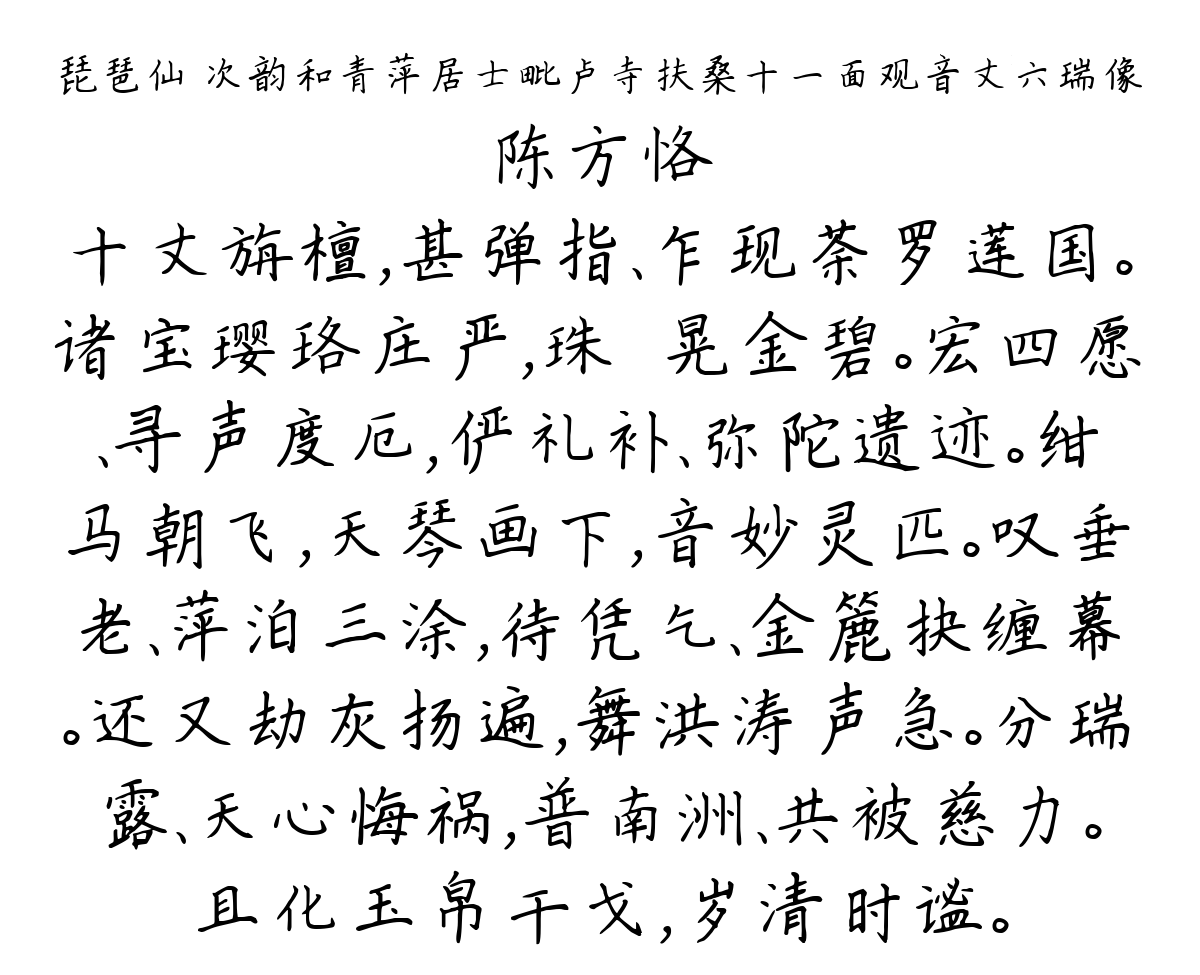 琵琶仙 次韵和青萍居士毗卢寺扶桑十一面观音丈六瑞像
陈方恪
十丈旃檀,甚弹指、乍现荼罗莲国。
诸宝璎珞庄严,珠 晃金碧。宏四愿
、寻声度厄,俨礼补、弥陀遗迹。绀
马朝飞,天琴画下,音妙灵匹。叹垂
老、萍泊三涂,待凭乞、金篦抉缠幕
。还又劫灰扬遍,舞洪涛声急。分瑞
露、天心悔祸,普南洲、共被慈力。
且化玉帛干戈,岁清时谧。